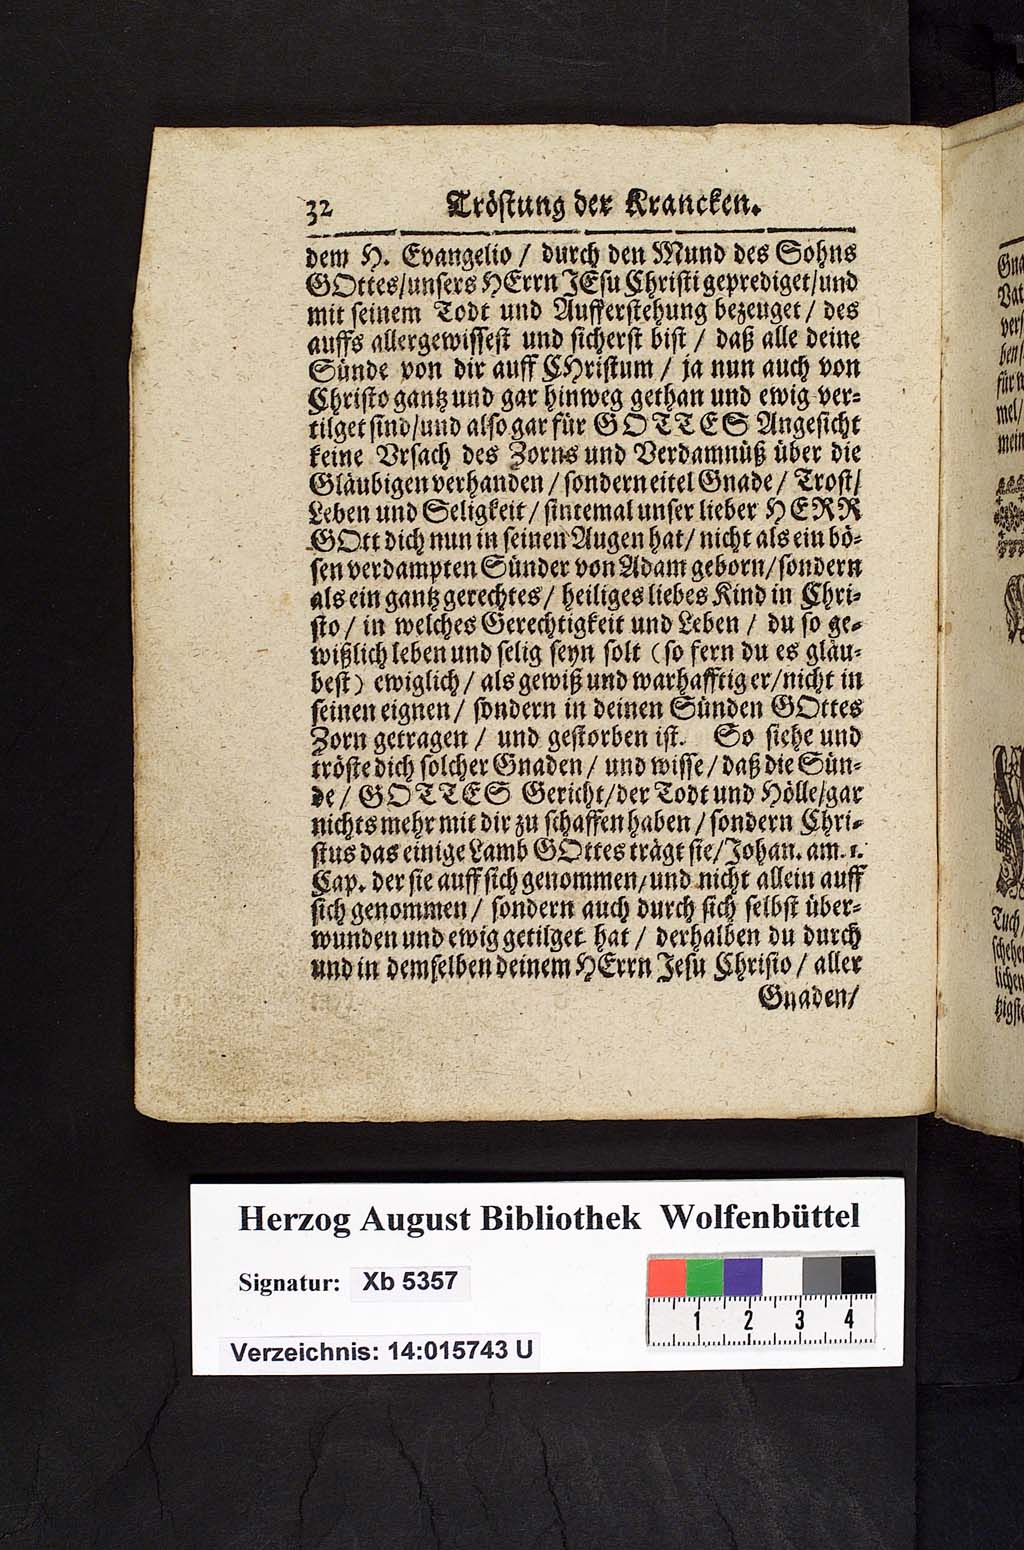 32 Tröstung der Krancken.
dem H. Evangelio / durch den Mund des Sohns
GOttes/unsers HErrn JEsu Christi geprediget/und
mit seinem Todt und Aufferstehung bezeuget / des
auffs allergewissest und sicherst bist / daß alle deine
Sünde von dir auff CHristum / ja nun auch von
Christo gantz und gar hinweg gethan und ewig ver-
tilget sind/und also gar für GOTTES Angesicht
keine Vrsach des Zorns und Verdamnüß über die
Gläubigen verhanden / sondern eitel Gnade / Trost/
Leben und Seligkeit / sintemal unser lieber HERR
GOtt dich nun in seinen Augen hat/ nicht als ein bö-
sen verdampten Sünder von Adam geborn/sondern
als ein gantz gerechtes / heiliges liebes Kind in Chri-
sto / in welches Gerechtigkeit und Leben / du so ge-
wißlich leben und selig seyn solt (so fern du es gläu-
best) ewiglich / als gewiß und warhafftig er/nicht in
seinen eignen / sondern in deinen Sünden GOttes
Zorn getragen / und gestorben ist. So siehe und
tröste dich solcher Gnaden / und wisse / daß die Sün-
de / GOTTES Gericht/der Todt und Hölle/gar
nichts mehr mit dir zu schaffen haben / sondern Chri-
stus das einige Lamb GOttes trägt sie/Johan. am. 1.
Cap. der sie auff sich genommen/und nicht allein auff
sich genommen / sondern auch durch sich selbst über-
wunden und ewig getilget hat / derhalben du durch
und in demselben deinem HErrn Jesu Christo / aller
Gnaden/
Gna
Vat
vers
ben/
für n
mel/
mein
Tuch/
schehe
lichen
tzigste
Herzog August Bibliothek Wolfenbüttel
Signatur: Xb 5357
Verzeichnis: 14:015743 U
1 2 3 4